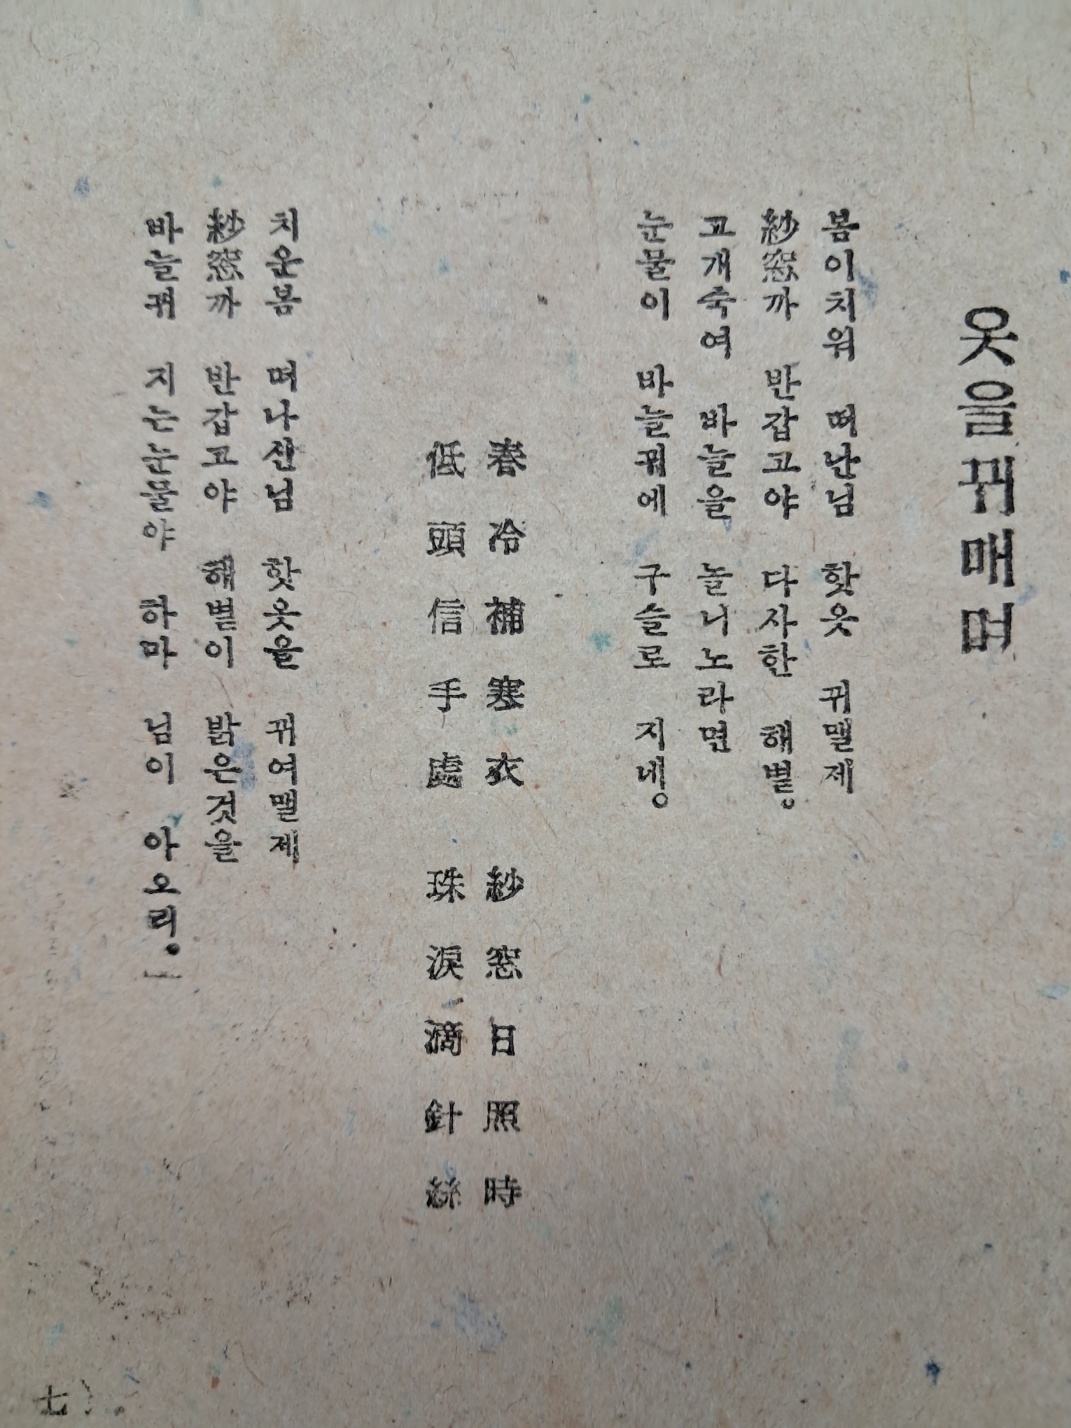 옷을뀌매며
봄이치워 떠난님 핫옷 귀맬제
紗窓까 반갑고야 다사한 해볕。
고개숙여 바늘을 놀니노라면
눈물이 바늘뀌에 구슬로 지네。
春冷補寒衣 紗窓日照時
低頭信手處 珠淚滴針絲
치운봄 떠나산님 핫옷을 뀌여맬제
紗窓까 반갑고야 해볕이 밝은것을
바늘뀌 지는눈물야 하마 님이 아오리。
七